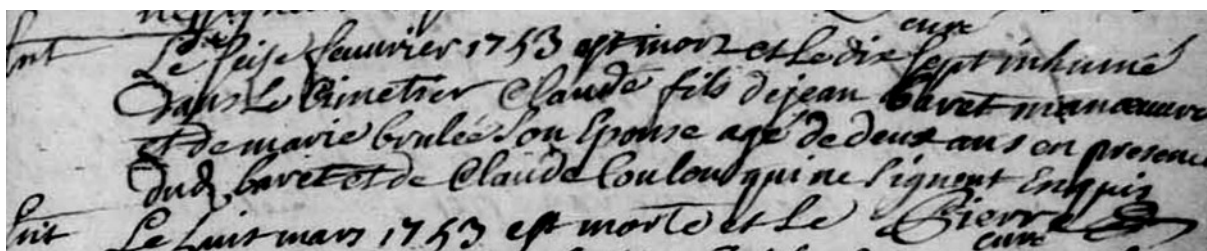 curé
Le seise feuvrier 1753 est mort et Le dix sept inhumé
dans Le Cimetier Claude fils de jean baret manoeuvre
et de marie brulée son Epouse agé de deux ans en presence
dud baret et de Claude Coulon qui ne signent Enquis
Le huit mars 1753 est morte et Le Pierre
curé